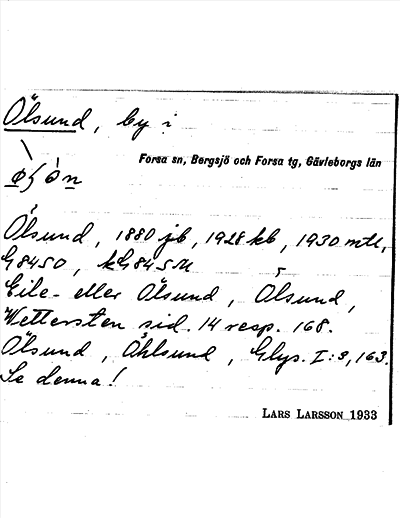 Ölsund, by i
Forsa sn, Bergsjö och Forsa tg, Gävleborgs län
Ölsund, 1880 jb, 1928 kb, 1930 mtl,
G8450, kG845M
Eile- eller Ölsund, Ölsund,
Wettersten sid. 14 resp. 168.
Ölsund, Öhlsund, Glys. I: 3, 163.
Se denna!
LARS LARSSON 1933